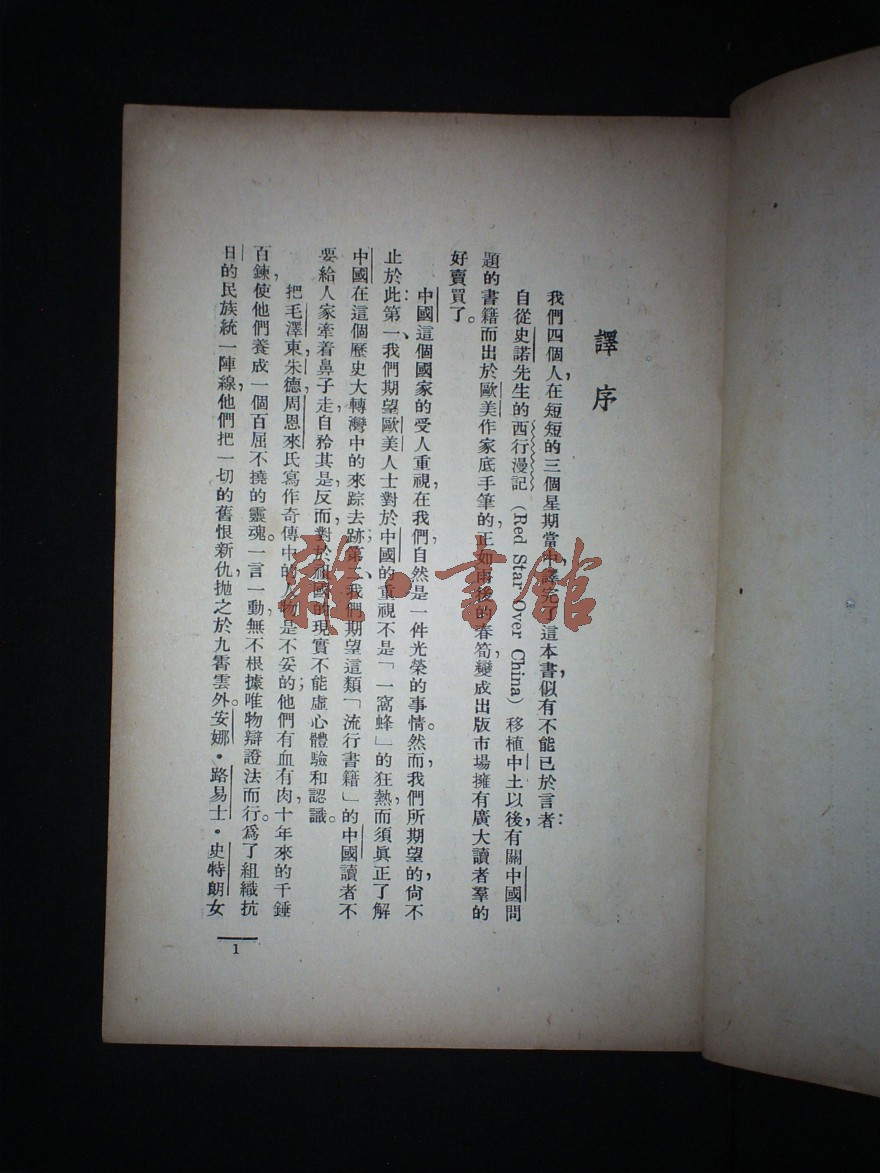 譯序
我們四個人，在短短的三個星期當中，譯完了這本書，似有不能已於言者：
自從史諾先生的西行漫記（Red Star Over China）移植中土以後，有關中國問
題的書籍而出於歐美作家底手筆的，正如雨後的春筍，變成出版市場擁有廣大讀者羣的
好賣買了。
中國這個國家的受人重視，在我們，自然是一件光榮的事情。然而，我們所期望的，尙不
止於此：第一、我們期望歐美人士對於中國的重視不是「一窩蜂」的狂熱，而須眞正了解
中國在這個歷史大轉灣中的來踪去跡；第二、我們期望這類「流行書籍」的中國讀者不
要給人家牽着鼻子走，自矜其是，反而對於祖國的現實不能虛心體驗和認識。
把毛澤東，朱德，周恩來氏寫作奇傳中的人物是不妥的；他們有血有肉，十年來的千錘
百鍊，使他們養成一個百屈不撓的靈魂。一言一動，無不根據唯物辯證法而行。爲了組織抗
日的民族統一陣線，他們把一切的舊恨新仇，拋之於九霄雲外。安娜·路易士·史特朗女
1
雜·書館